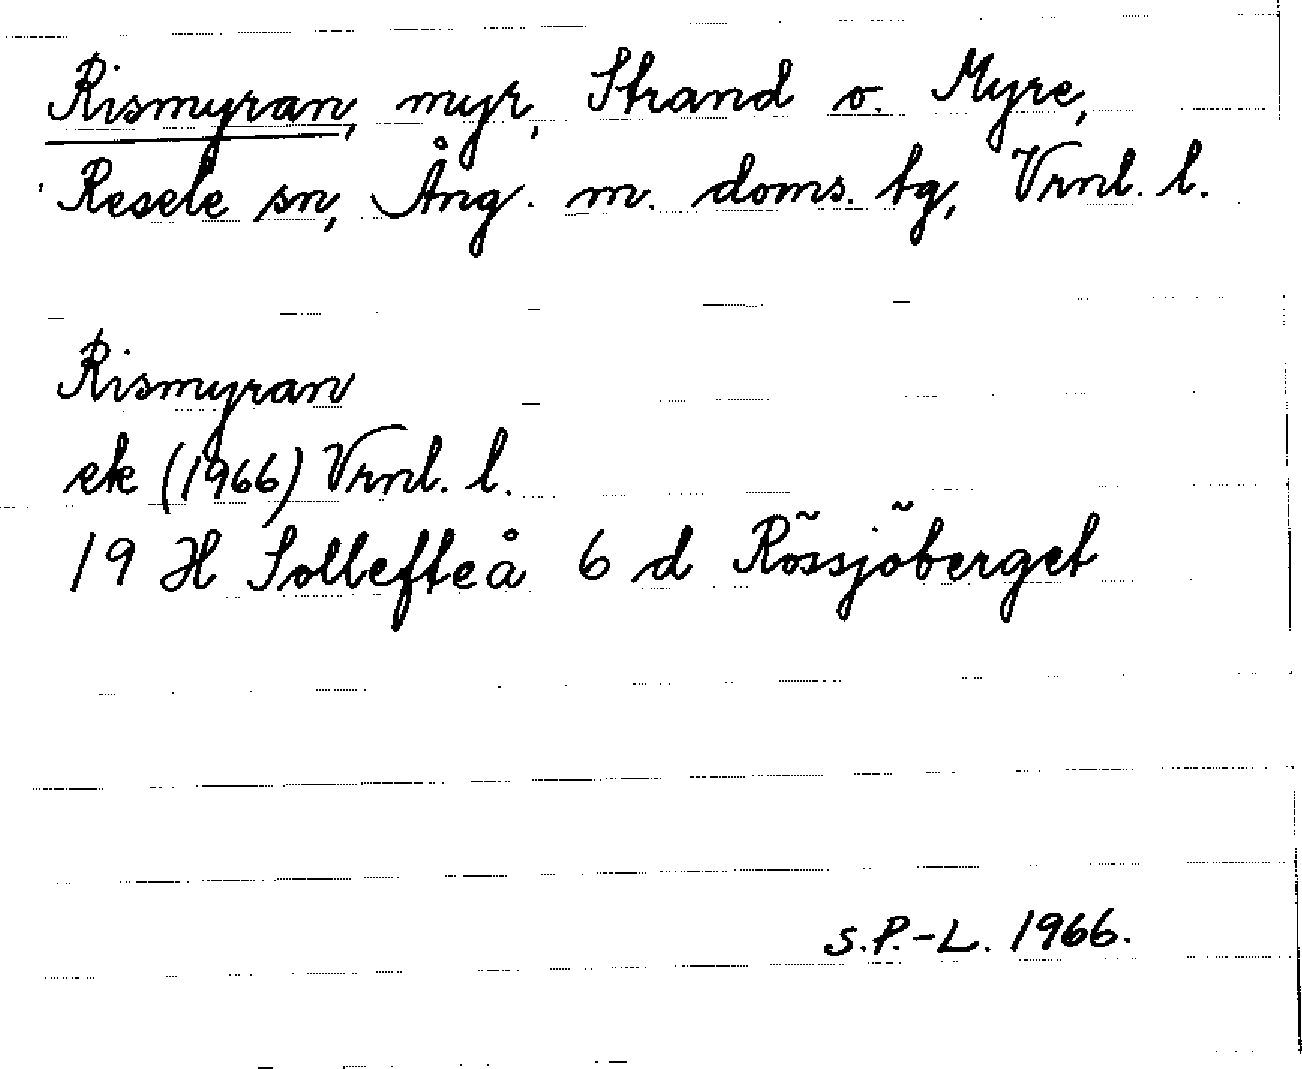 Rismyran, myr, Strand o. Myre,
Resele sn, Ång. m. doms. tg, Vrnl. l.
Rismyran
ek (1966) Vrnl. l.
19 H Sollefteå 6 d Rössjöberget
S.P.-L. 1966.